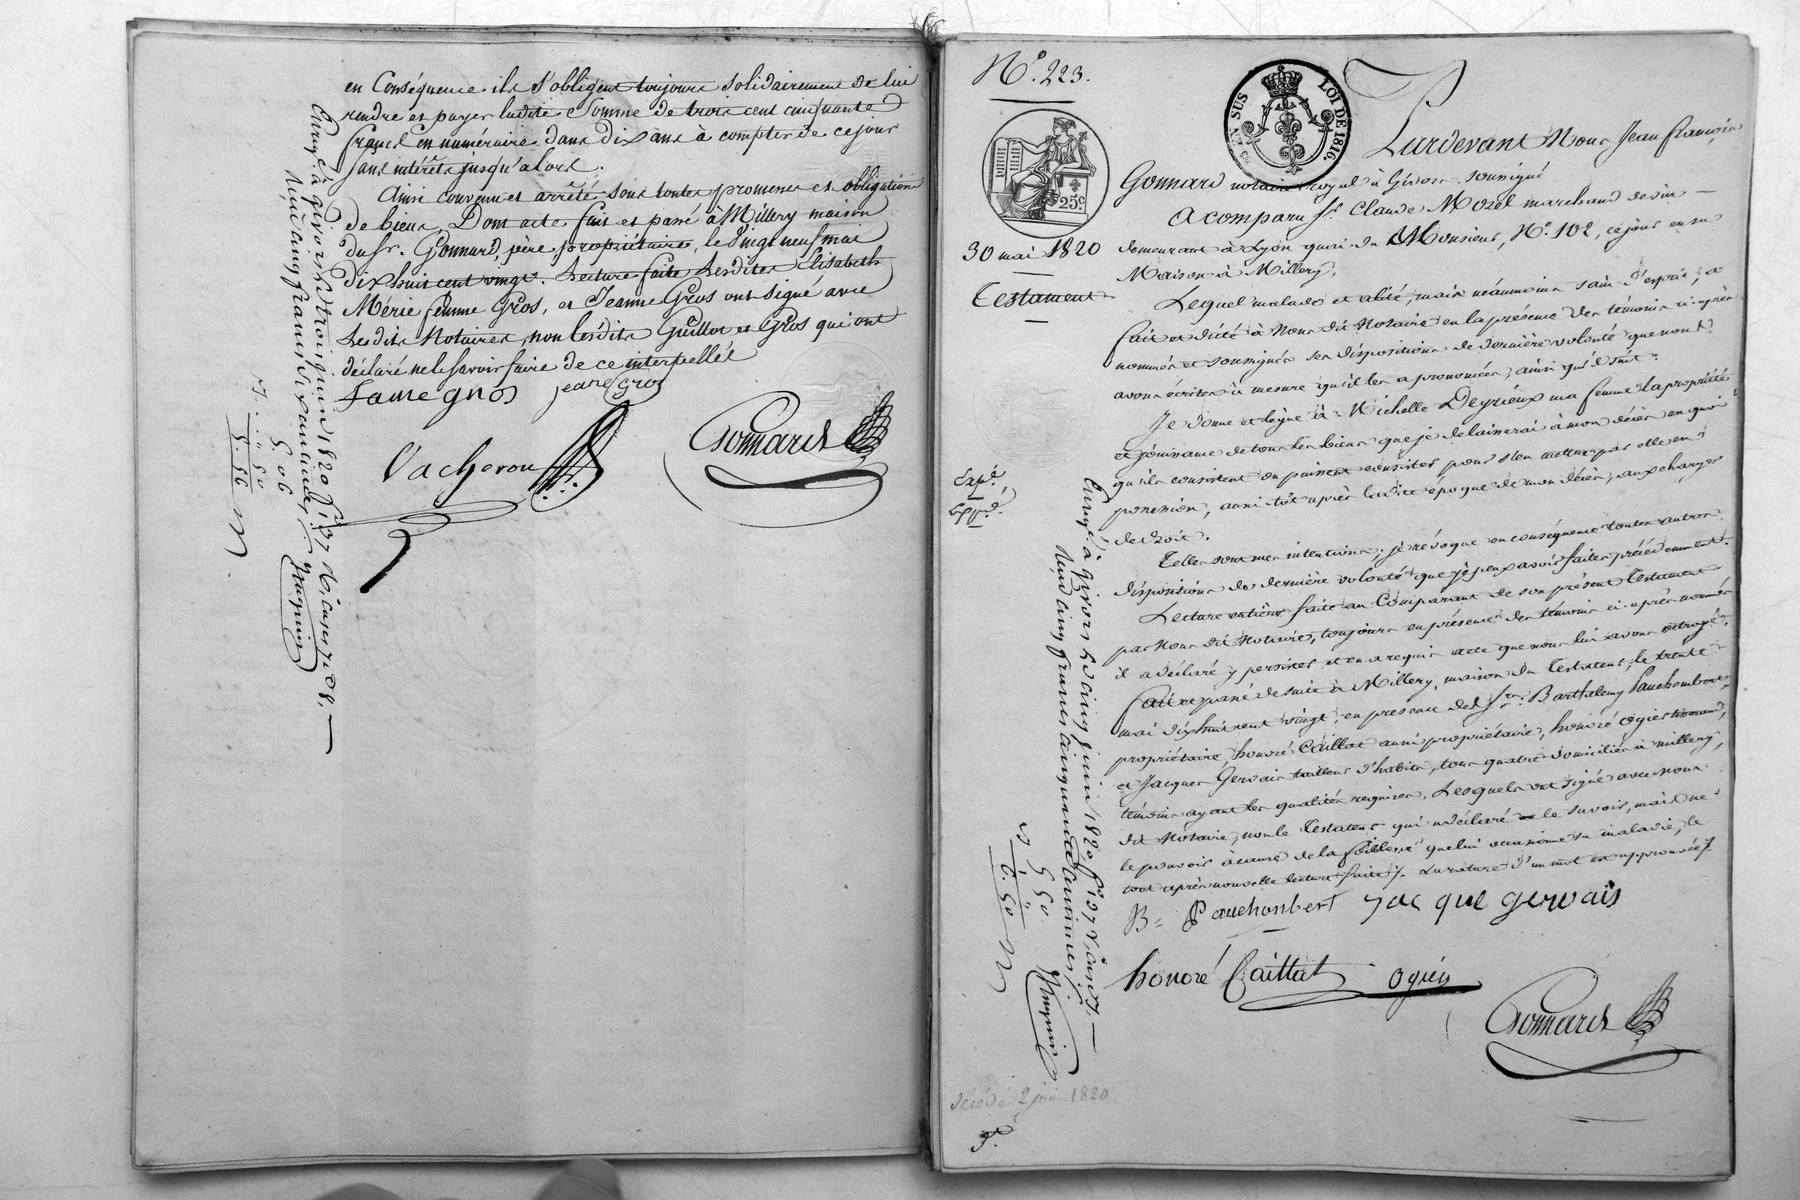 en Conséquence ils s'obligent toujours solidairement de lui
rendre et payer ladite Somme de trois cent cinquante
francs en numéraire dans dix ans à compter de ce jour
sans intérêts jusqu'alors.
Ainsi convenu et arrêté sous toutes promesses et obligations
de biens. Dont acte fait et passé à Millery maison
du Sr. Gonnard, père, propriétaire, le Vingt neuf mai
dix huit cent vingt. Lecture faite Lesdites Elisabeth
Mérie femme Gros, et Jeanne Gros ont signé avec
Lesdits Notaires, non lesdits Guillot et Gros qui ont
déclaré ne le savoir faire de ce interpellés
Fame gros jeane Gros
Vacheron
Gonnard
Enrg.é à givors le trois juin 1820 f.°
Reçu cinq francs
5. 06
N°. 223.
25c
EN SUS
LOI DE 1816.
30 mai 1820
Testament
Exp.é
Pardevant Nous Jean françois
Gonnard notaire royal à Givors, soussigné
A comparu Sr. Claude Morel marchand de vin
demeurant à Lyon quai de Monsieur, N°. 102, ce jour en sa
Maison à Millery,
Lequel malade et alité, mais néanmoins sain d'esprit, a
fait et dicté à Nous dit Notaire en la présence des témoins ci-après
nommés et soussignés ses dispositions de dernière volonté que nous
avons écrites à mesure qu'il les a prononcées, ainsi qu'il suit :
Je donne et lègue à Michelle Deyrieux ma femme la propriété
et jouissance de tous les biens que je delaisserai à mon décès en quoi
qu'ils consistent ou puissent consister pour s'en mettre par elle en
possession, aussitôt après ladite époque de mon décès, aux charges
de droit.
Telles sont mes intentions ; je révoque en conséquence toutes autres
dispositions de dernière volonté que je peux avoir faites précédemment.
Lecture entière faite au Comparant de son présent Testament
par Nous dit Notaire, toujours en présence des témoins ci-après nommés
il a déclaré y persister et en a requis acte que nous lui avons octroyé,
fait et passé de suite à Millery, maison du Testateur, le trente
mai dix huit cent vingt, en presence des Srs. Barthelemy Pauchombert,
propriétaire, honoré Caillat aussi propriétaire, honoré ogier
et Jacques Gervais tailleur d'habits, tous quatre domiciliés à millery,
témoins ayant les qualités requises, Lesquels ont signé avec nous
dit Notaire, non le Testateur qui a déclaré le savoir, mais ne
le pouvoir à cause de la foiblesse que lui occasionne sa maladie, le
tout après nouvelle lecture faite ;. La rature d'un mot est approuvée ;.
B= Pauchonbert Jacque gervais
honoré Caillat ogier
Gonnard
Enrg.é à givors le cinq juin 1820 f.°
Reçu cinq francs cinquante centimes
5 50
décédé 2 juin 1820.